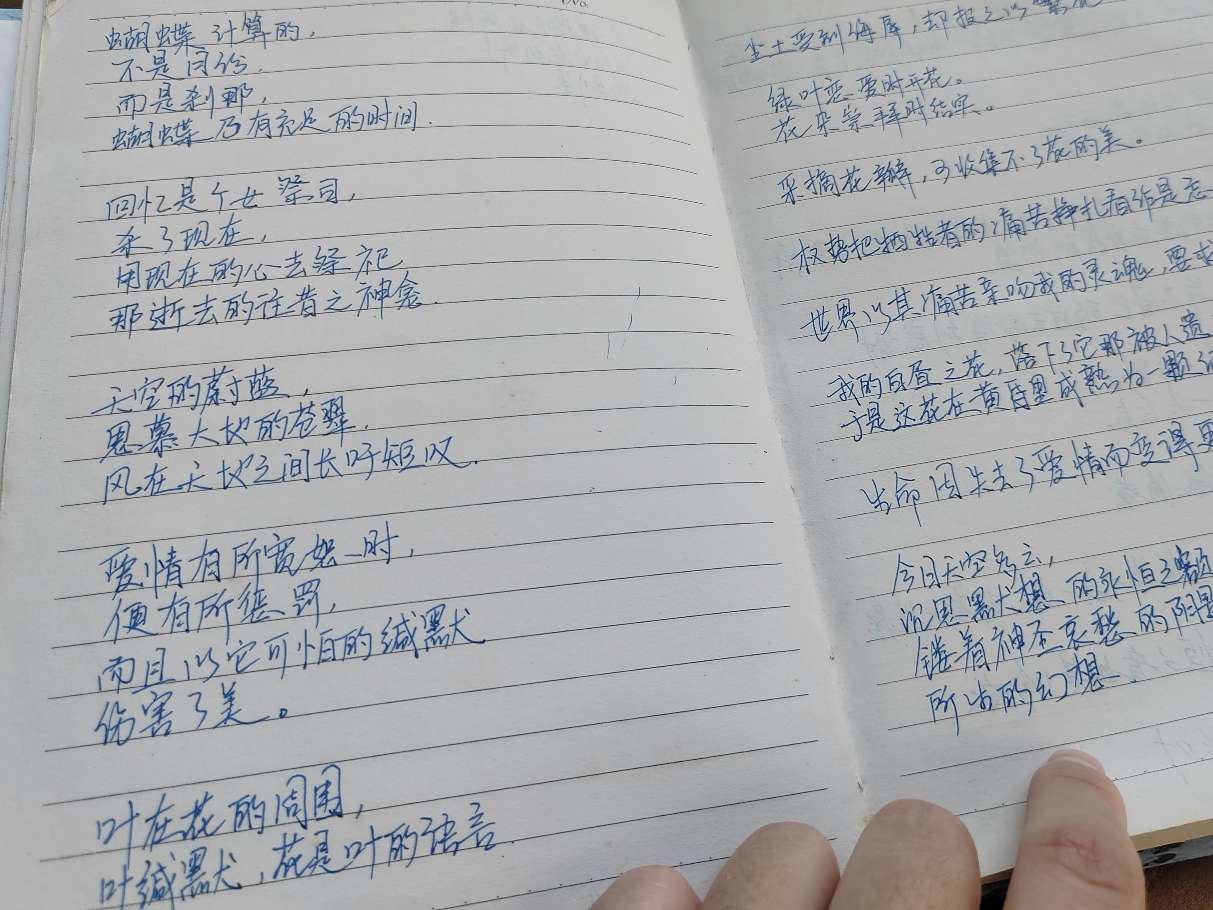 蝴蝶计算的,
不是月份,
而是刹那,
蝴蝶乃有充足的时间.
回忆是个女祭司,
杀了现在,
用现在的心去祭祀
那逝去的往昔之神龛.
天空的蔚蓝,
思慕大地的苍翠.
风在天地之间长吁短叹.
爱情有所宽恕时,
便有所惩罚,
而且以它可怕的缄默
伤害了美。
叶在花的周围,
叶缄默,花是叶的语言.
尘土受到侮辱,却报之以
绿叶恋爱时开花。
花朵崇拜时结实。
采摘花瓣,可收集不了花的美。
权势把牺牲者的痛苦挣扎看作是忘
世界以其痛苦亲吻我的灵魂,要求
我的白昼之花,落下了它那被人遗
于是这花在黄昏里成熟为一颗
生命因失去了爱情而变得更
今日天空多云,
沉思默想的永恒之额
镂着神圣哀愁的阴
所生的幻想.